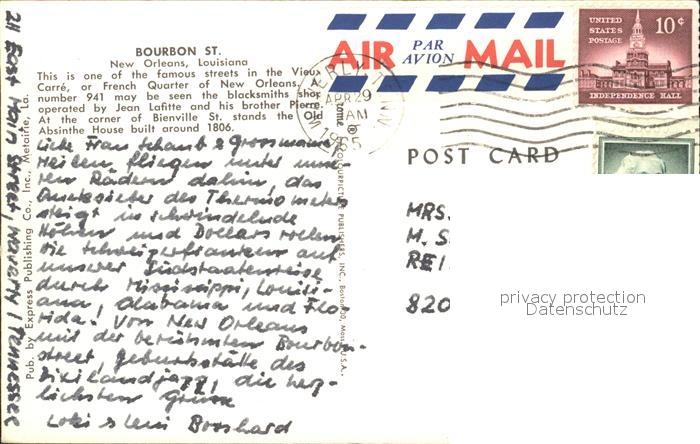 BOURBON ST.
New Orleans, Louisiana
This is one of the famous streets in the Vieux
Carré, or French Quarter of New Orleans. A
number 941 may be seen the blacksmiths shop
operated by Jean Lafitte and his brother Pierre.
At the corner of Bienville St. stands the Old
Absinthe House built around 1806.
Liebe Frau Schaub & Grossmama
Meilen fliegen unter unse-
ren Rädern dahin, das
Quecksilber des Thermometers
steigt in schwindelnde
Höhen und Dollars rollen
wie Schweizerfranken auf
unserer Südstaatenreise
durch Mississippi, Louisi-
ana, Alabama und Flo-
rida. Von New Orleans
mit der berühmten Bourbon-
street, Geburtsstätte des
Dixilandjazz, die herz-
lichsten Grüsse
Loki & Leni Bosshard
211 East Main Street, Waverly / Tennessee
Pub. by Express Publishing Co., Inc., Metairie, La.
COLOURPICTURE PUBLISHERS, INC., Boston 30, Mass., U.S.A.
AIR PAR AVION MAIL
WAVERLY, TENN.
APR 29
AM
1965
UNITED
STATES
POSTAGE
10¢
INDEPENDENCE HALL
POST CARD
MRS.
M. S
REI
820
privacy protection
Datenschutz